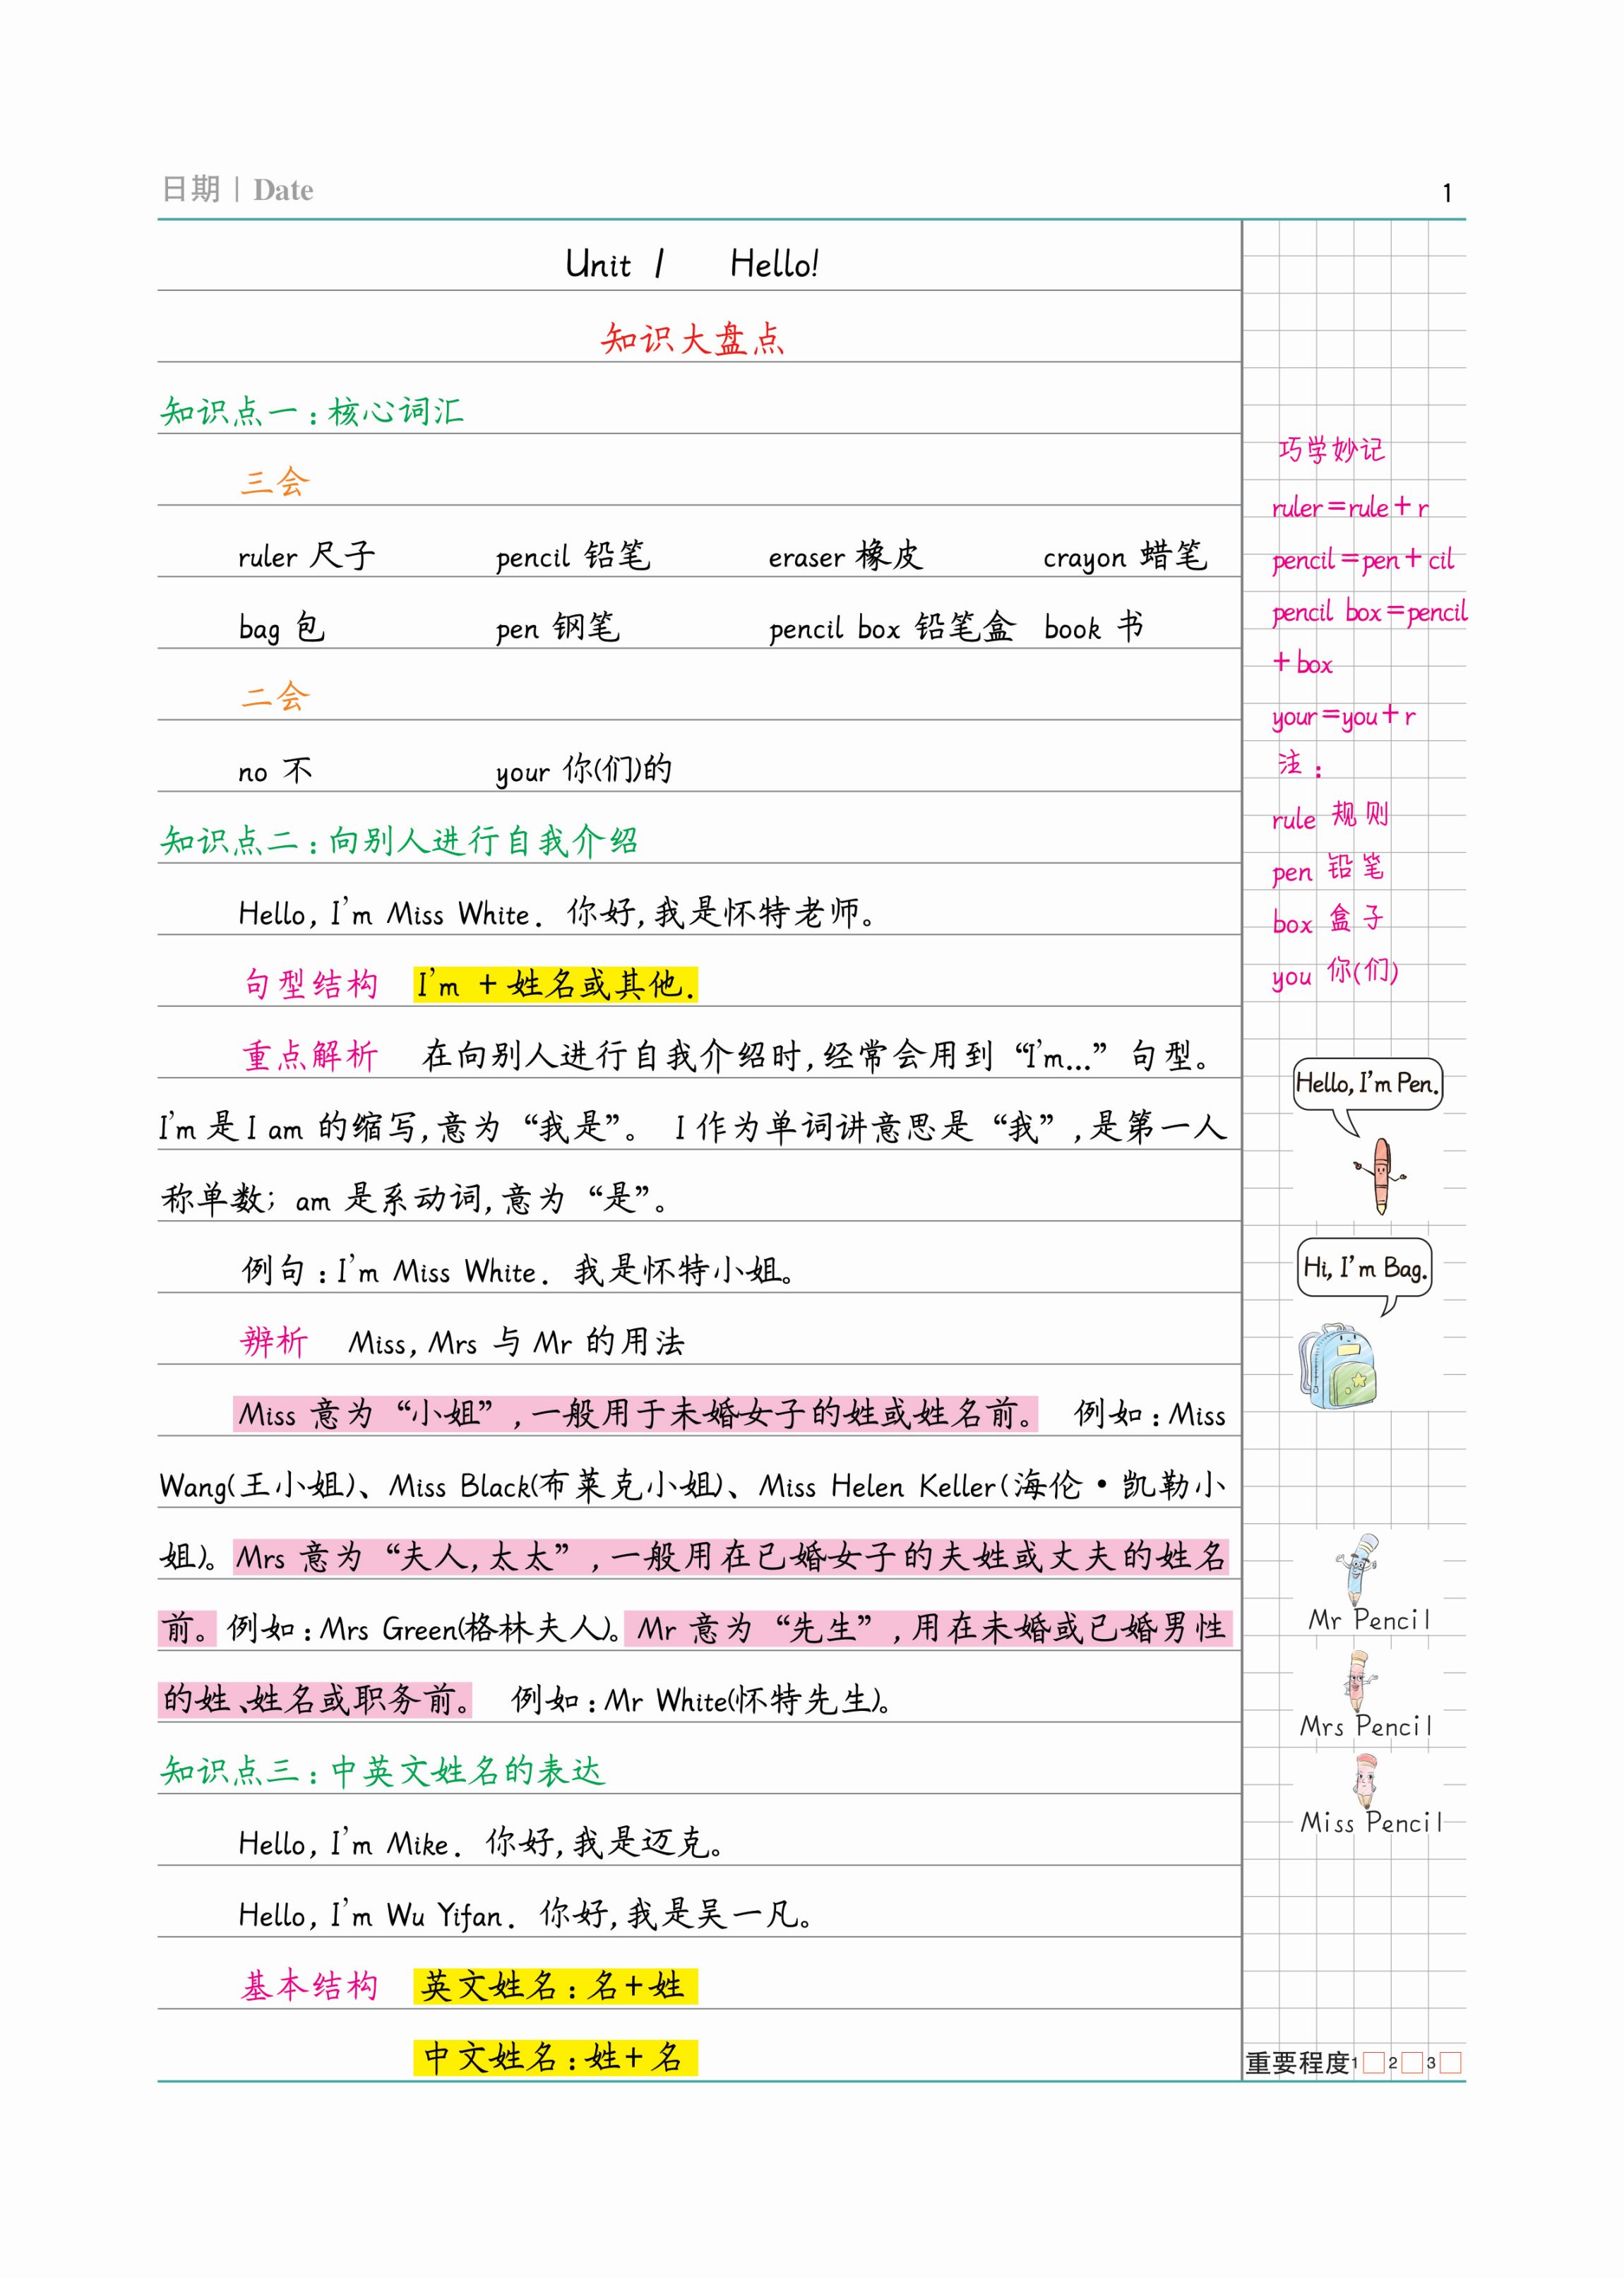 日期 | Date
1
Unit 1 Hello!
知识大盘点
知识点一:核心词汇
三会
ruler 尺子 pencil 铅笔 eraser 橡皮 crayon 蜡笔
bag 包 pen 钢笔 pencil box 铅笔盒 book 书
二会
no 不 your 你(们)的
知识点二:向别人进行自我介绍
Hello, I'm Miss White. 你好,我是怀特老师。
句型结构 I'm + 姓名或其他.
重点解析 在向别人进行自我介绍时,经常会用到“I'm...”句型。
I'm 是 I am 的缩写,意为“我是”。 I 作为单词讲意思是“我”,是第一人
称单数; am 是系动词,意为“是”。
例句:I'm Miss White. 我是怀特小姐。
辨析 Miss, Mrs 与 Mr 的用法
Miss 意为“小姐”,一般用于未婚女子的姓或姓名前。 例如:Miss
Wang(王小姐)、Miss Black(布莱克小姐)、Miss Helen Keller(海伦·凯勒小
姐)。Mrs 意为“夫人,太太”,一般用在已婚女子的夫姓或丈夫的姓名
前。例如:Mrs Green(格林夫人)。Mr 意为“先生”,用在未婚或已婚男性
的姓、姓名或职务前。 例如:Mr White(怀特先生)。
知识点三:中英文姓名的表达
Hello, I'm Mike. 你好,我是迈克。
Hello, I'm Wu Yifan. 你好,我是吴一凡。
基本结构 英文姓名:名+姓
中文姓名:姓+名
巧学妙记
ruler=rule+r
pencil=pen+cil
pencil box=pencil
+box
your=you+r
注:
rule 规则
pen 铅笔
box 盒子
you 你(们)
Hello, I'm Pen.
Hi, I'm Bag.
Mr Pencil
Mrs Pencil
Miss Pencil
重要程度1□2□3□